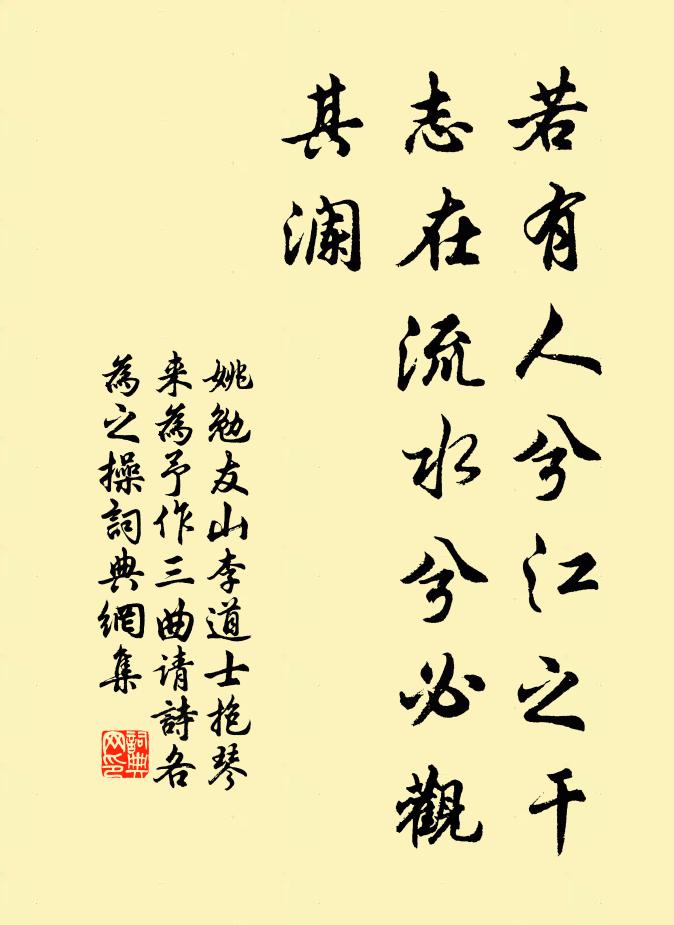 若有人兮江之干
志在流水兮必觀
其澜
姚勉友山李道士抱琴
来為予作三曲请詩名
為之操詞典網集
詞典网印